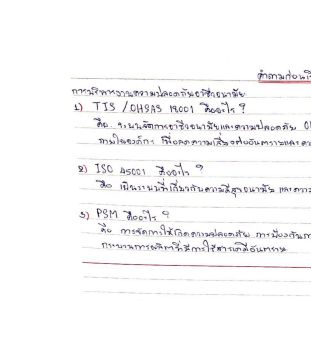 คำถามก่อนเรี
การบริหารงานความปลอดภัยอาชีวอนามัย
1) TIS / OHSAS 18001 คืออะไร ?
คือ ระบบจัดการอาชีวอนามัยและความปลอดภัย
ภายในองค์กร เพื่อลดความเสี่ยงต่ออันตรายและ
2) ISO 45001 คืออะไร ?
คือ เป็นระบบที่เกี่ยวกับความมีสุขอนามัย และความ
3) PSM คืออะไร ?
คือ การจัดการให้เกิดความปลอดภัย การป้องกัน
กระบวนการผลิตที่มีการใช้สารเคมีอันตราย